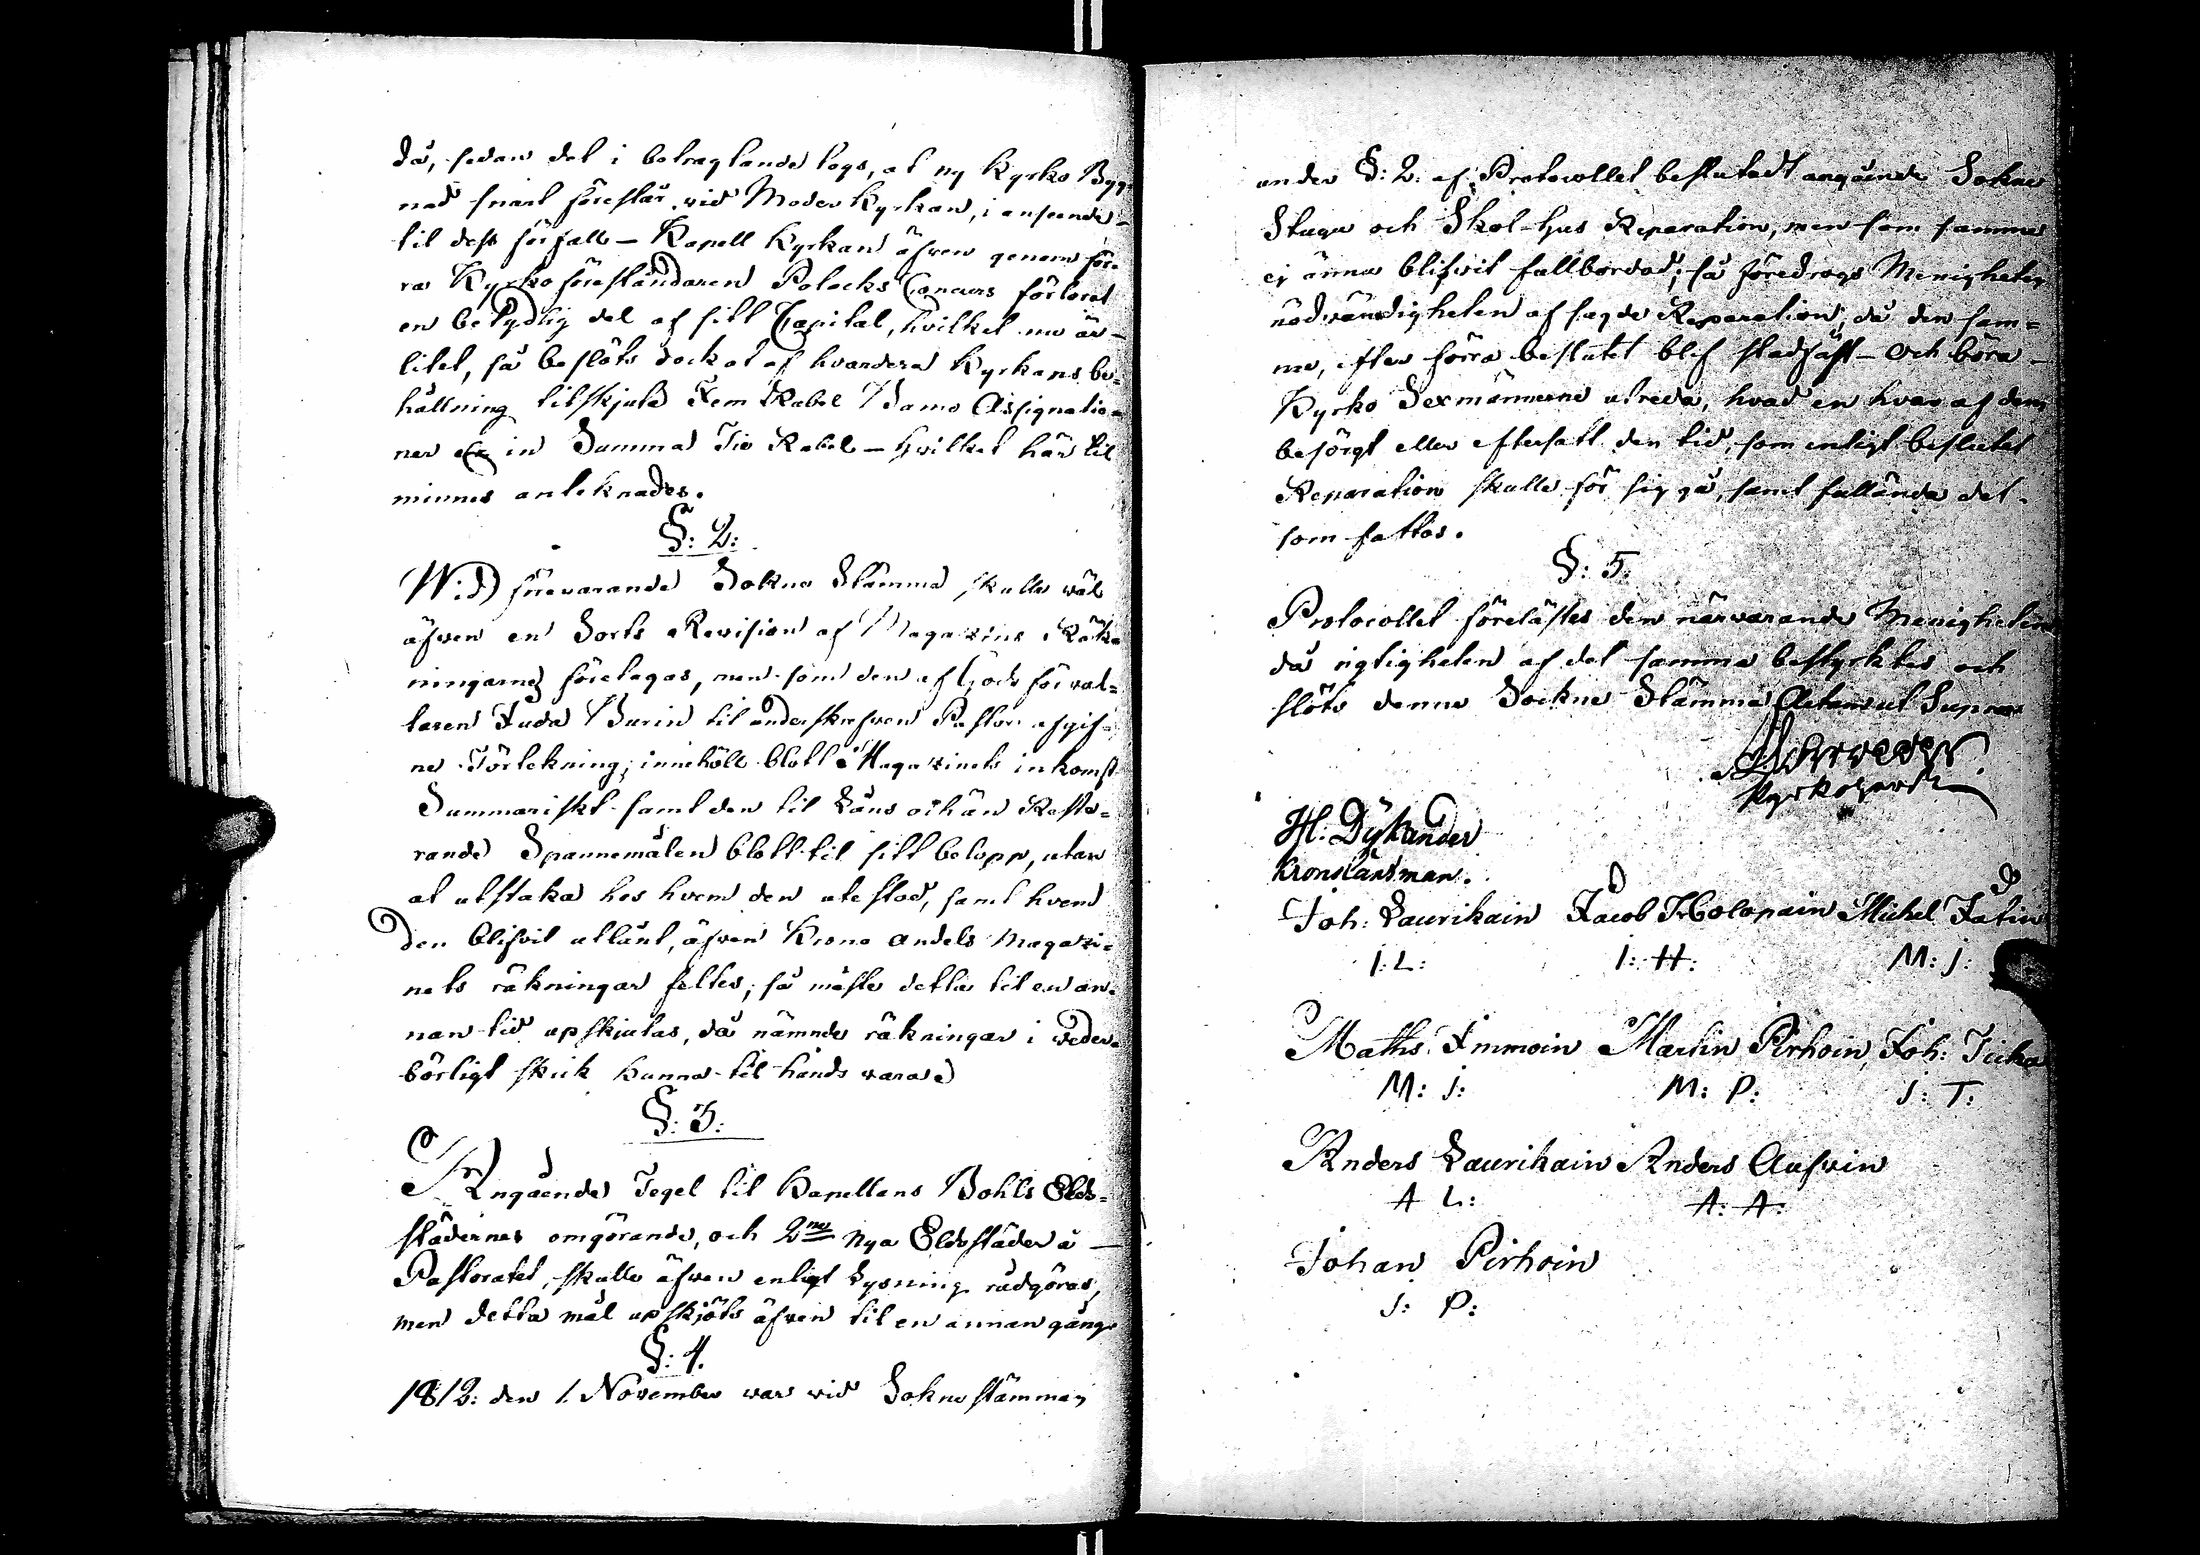 då, sedan det i betragtande togs, at ny Kyrko Bygg-
nad snart förestår vid Moder Kyrkan, i anseende
til dess förfall — Kapell Kyrkan äfven genom för-
ra Kyrkoföreståndaren Polacks Concurs förlorat
en betydlig del af sitt Capital, hvilket nu är
litet, så beslöts dock at af hvardera Kyrkans be-
hållning tilskjuta Fem Rubel Banco Assignatio-
ner in Summa Tio Rubel — hvilket här til
minnes anteknades.
§: 2:
Wid förevarande Sokne Stämma skulle wäl
äfven en Sorts Revision af Magazins Räk-
ningarne företagas, men som den af Gods förval-
taren Juda Burin til underskrefven Pastor afgif-
ne Förtekning, innehölt blott Magazinets inkomst
Summariskt samt den til Låns och än Reste-
rande Spannemålen blott til sitt belopp, utan
at utstaka hos hvem den utestod, samt hvem
den blifvit utlånt, äfven Krono andels Magazi-
nets räkningar feltes; så måste detta til en an-
nan tid upskjutas, då nämnde räkningar i veder-
börligt skick kunna til hands vara.
§: 3:
Angående Tegel til Kapellans Bohls Elds-
städernes omgörande, och 2ne Nya Eldstäder å
Pastoratet, skulle äfven enligt Lysning rådgöras,
men detta mål upskjöts äfven til en annan gång.
§: 4.
1812: den 1. November var vid Sokne stämman
under §: 2: af Protocollet beslutadt angående Sokne
Stugu och Skol-hus Reparation, men som samma
ej ännu blifvit fullbordad; så föredrogs Menigheten
nödvändigheten af sagde Reparation, då den sam-
me, efter förra beslutet blef stadfäst — och böra
Kyrko Sexmännerne utreda, hvad en hvar af dem
besörgt eller eftersatt den tid, som enligt beslutet
Reparation skulle för sig gå, samt fullända det
som fattas.
§: 5.
Protocollet förelästes den närvarande Menigheten
då rigtigheten af det samma bestyrktes och
slöts denne Sockne Stämma Actum ut Supra
Kyrkoherde
Hl. Dykander
Kronolänsman.
Joh: Laurikain Jacob Holopain Michel Jatin
J: L: I: H: M: J:
Maths Immoin Martin Pirhoin, Joh: Tuka
M: J: M: P: J: T:
Anders Laurikain Anders Aufvin
A L: A: A:
Johan Pirhoin
J: P: